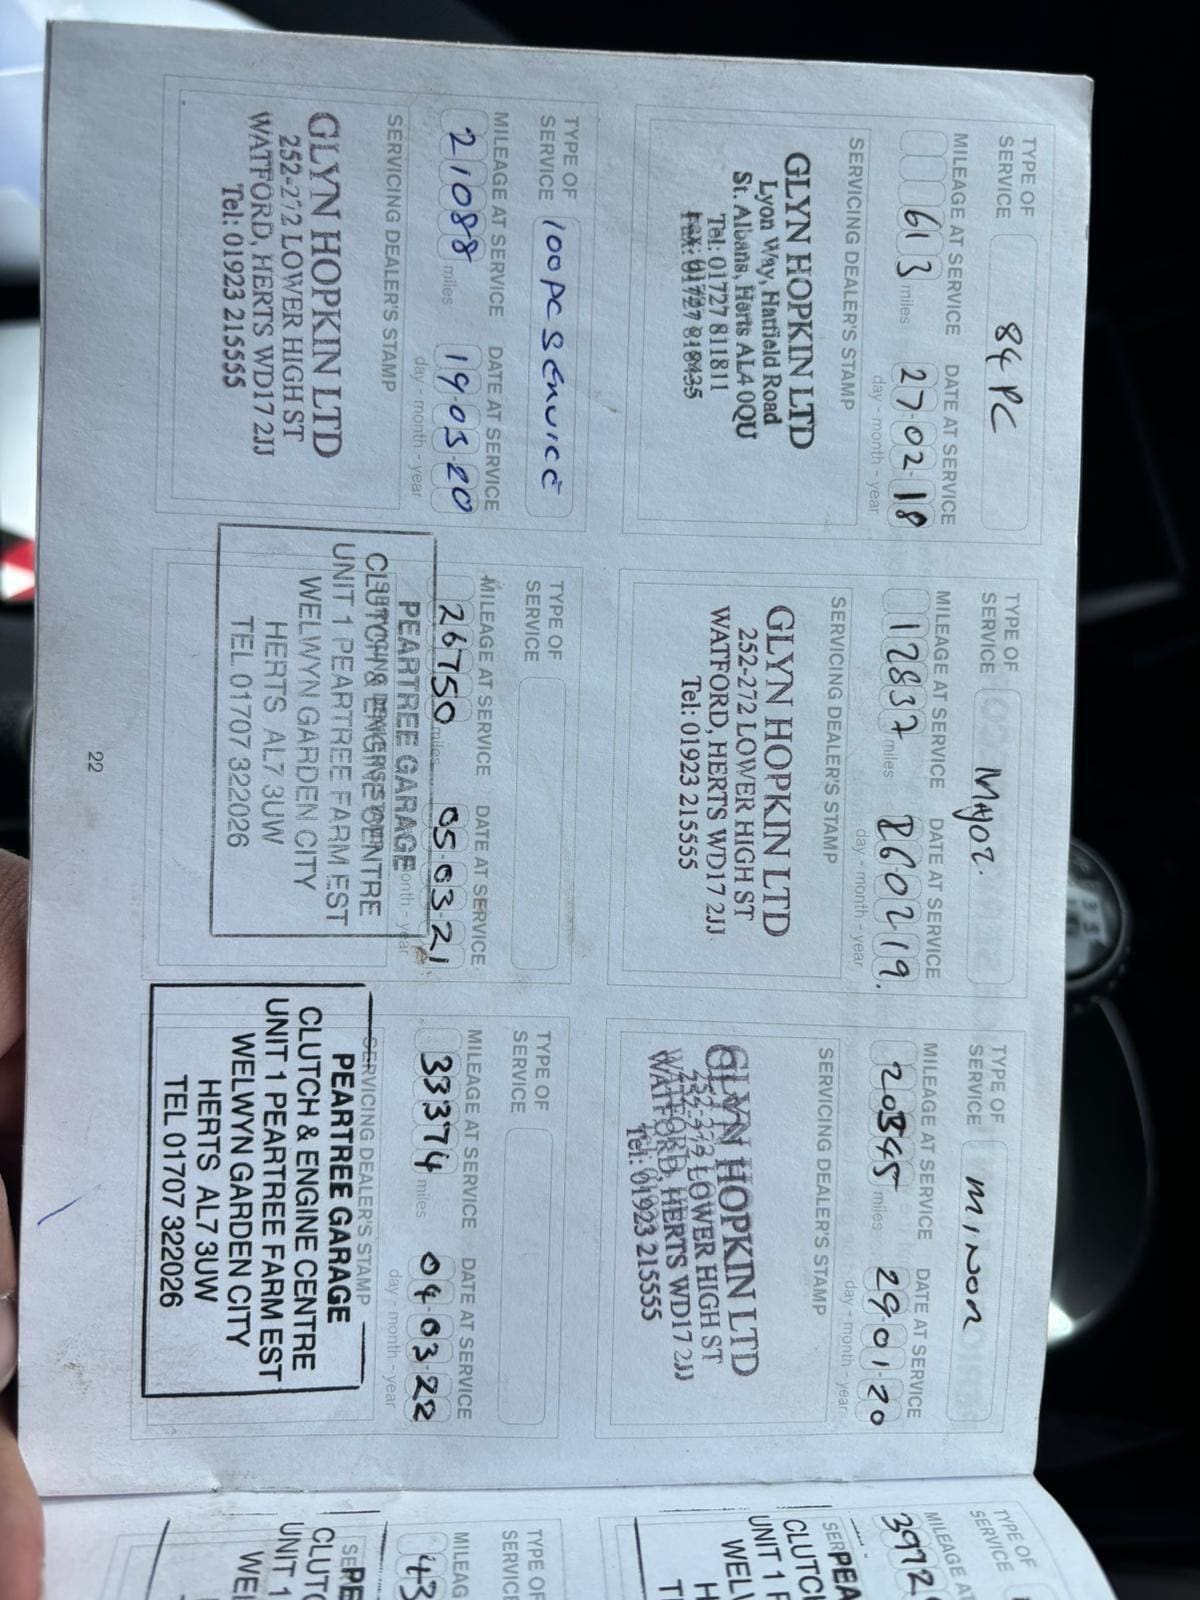 TYPE OF
SERVICE
84 PC
MILEAGE AT SERVICE
613 miles
DATE AT SERVICE
27-02-18
day - month - year
SERVICING DEALER'S STAMP
GLYN HOPKIN LTD
Lyon Way, Hatfield Road
St. Albans, Herts AL4 0QU
Tel: 01727 811811
TYPE OF
SERVICE
Major.
MILEAGE AT SERVICE
12837 miles
DATE AT SERVICE
260219.
day - month - year
SERVICING DEALER'S STAMP
GLYN HOPKIN LTD
252-272 LOWER HIGH ST
WATFORD, HERTS WD17 2JJ
Tel: 01923 215555
TYPE OF
SERVICE
MINOR
MILEAGE AT SERVICE
20345 miles
DATE AT SERVICE
29-01-20
day - month - year
SERVICING DEALER'S STAMP
GLYN HOPKIN LTD
252-272 LOWER HIGH ST
WATFORD, HERTS WD17 2JJ
Tel: 01923 215555
TYPE OF
SERVICE
100 PC SERVICE
MILEAGE AT SERVICE
21088 miles
DATE AT SERVICE
19-03-20
day - month - year
SERVICING DEALER'S STAMP
GLYN HOPKIN LTD
252-272 LOWER HIGH ST
WATFORD, HERTS WD17 2JJ
Tel: 01923 215555
TYPE OF
SERVICE
MILEAGE AT SERVICE
26750 miles
DATE AT SERVICE
05-03-21
month - year
PEARTREE GARAGE
CLUTCH & ENGINE CENTRE
UNIT 1 PEARTREE FARM EST
WELWYN GARDEN CITY
HERTS AL7 3UW
TEL 01707 322026
TYPE OF
SERVICE
MILEAGE AT SERVICE
33374 miles
DATE AT SERVICE
04-03-22
day - month - year
SERVICING DEALER'S STAMP
PEARTREE GARAGE
CLUTCH & ENGINE CENTRE
UNIT 1 PEARTREE FARM EST
WELWYN GARDEN CITY
HERTS AL7 3UW
TEL 01707 322026
22
TYPE OF
SERVICE
MILEAGE AT
3972
SER
PEA
CLUTCH
UNIT 1 P
WELW
H
T
TYPE OF
SERVICE
MILEAG
43
SER
PE
CLUTC
UNIT 1
WE